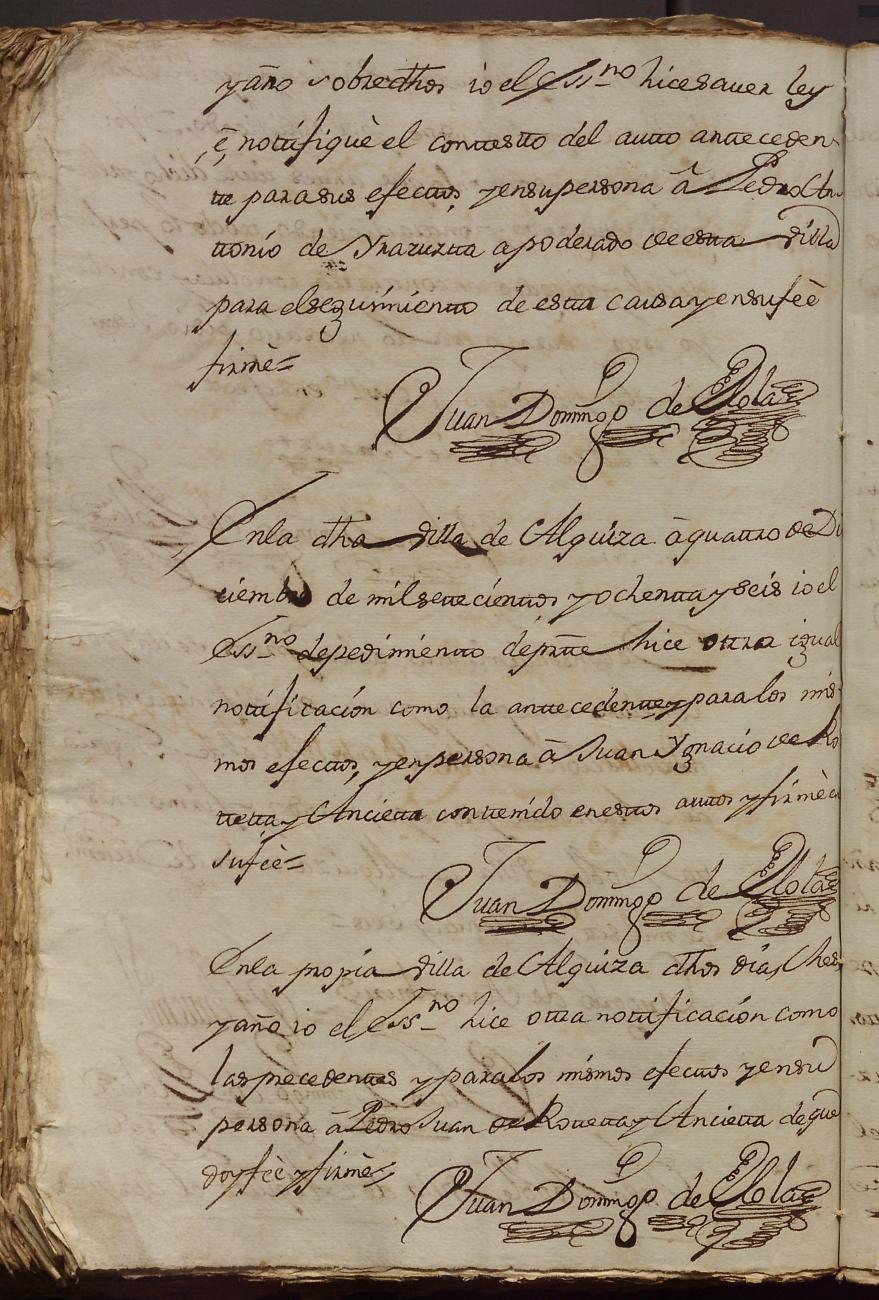 y año sobredhos io el Essno hice sauer ley
é, notifiquè el contestto del autto antteceden-
tte para sus efecttos, y en su persona â Pedro An
ttonio de Yrazuztta apoderado de estta Villa
para el seguimientto de estta causa y en su feè
firmè=
Juan Domingo de Olola
En la dha Villa de Alquiza â quattro de Di
ciembre de mil settecienttos y ochentta y seis io el
Essno de pedimientto de partte hice ottra igual
nottificación como la anttecedentte y para los mis-
mos efecttos, y en persona â Juan Ygnacio de Ro
tteta y Ancietta conttenido en esttos auttos y firmè
su feè=
Juan Domingo de Olola
En la propia Villa de Alquiza dhos dia, mes
y año io el Essno hice ottra nottificación como
las precedenttes y para los mismos efecttos y en su
persona â Pedro Juan de Rotteta y Ancietta de que
doy feè y firmè=
Juan Domingo de Olola